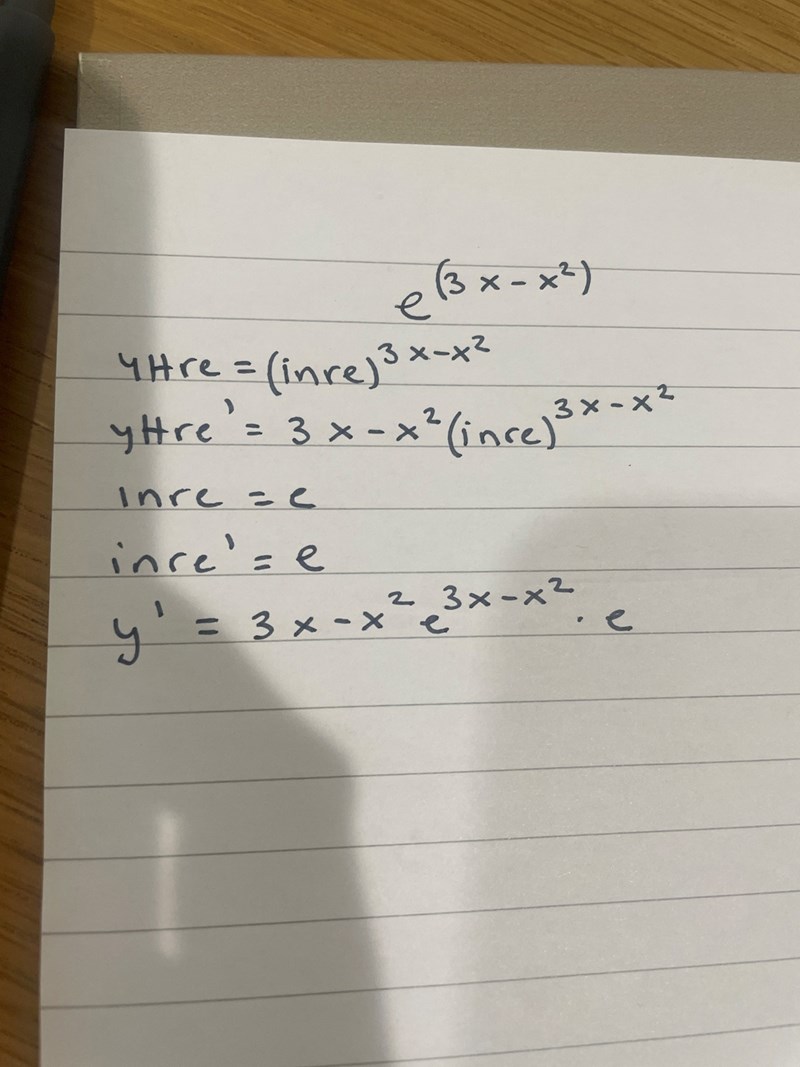 e^(3x-x²)
yttre = (inre)^3x-x²
yttre' = 3x-x²(inre)^3x-x²
inre = e
inre' = e
y' = 3x-x² e^3x-x² · e